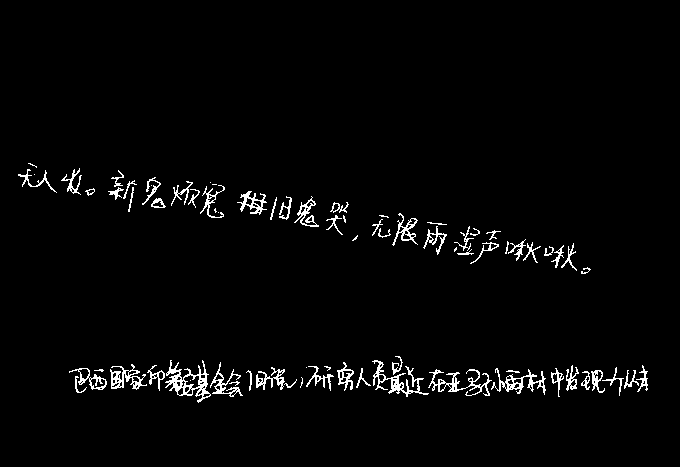 无人收。新鬼烦冤旧鬼哭，无限雨湿声啾啾。
巴西国家印第安基金会1日说，研究人员最近在亚马孙雨林中发现个从未